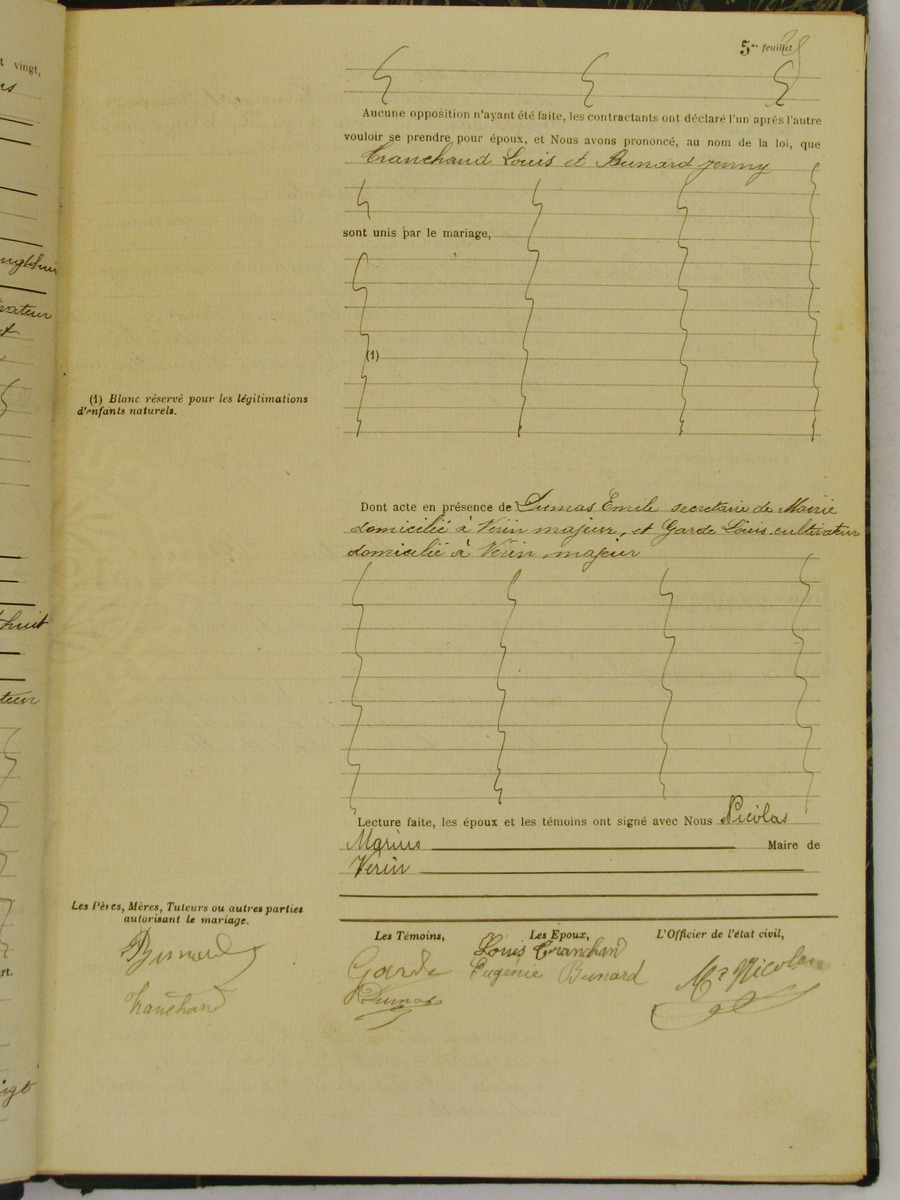 5me feuillet
Aucune opposition n'ayant été faite, les contractants ont déclaré l'un après l'autre
vouloir se prendre pour époux, et Nous avons prononcé, au nom de la loi, que
Tranchand Louis et Bunard Jenny
sont unis par le mariage,
(1)
(1) Blanc réservé pour les légitimations
d'enfants naturels.
Dont acte en présence de Dumas Emile secretaire de Mairie
domicilié à Vérin majeur, et Garde Louis cultivateur
domicilié à Vérin, majeur
Lecture faite, les époux et les témoins ont signé avec Nous Nicolas
Marius Maire de
Verin
Les Pères, Mères, Tuteurs ou autres parties
autorisant le mariage.
Bunard
Tranchand
Les Témoins,
Garde
Dumas
Les Epoux,
Louis Tranchand
Eugénie Bunard
L'Officier de l'état civil,
Ms Nicolas